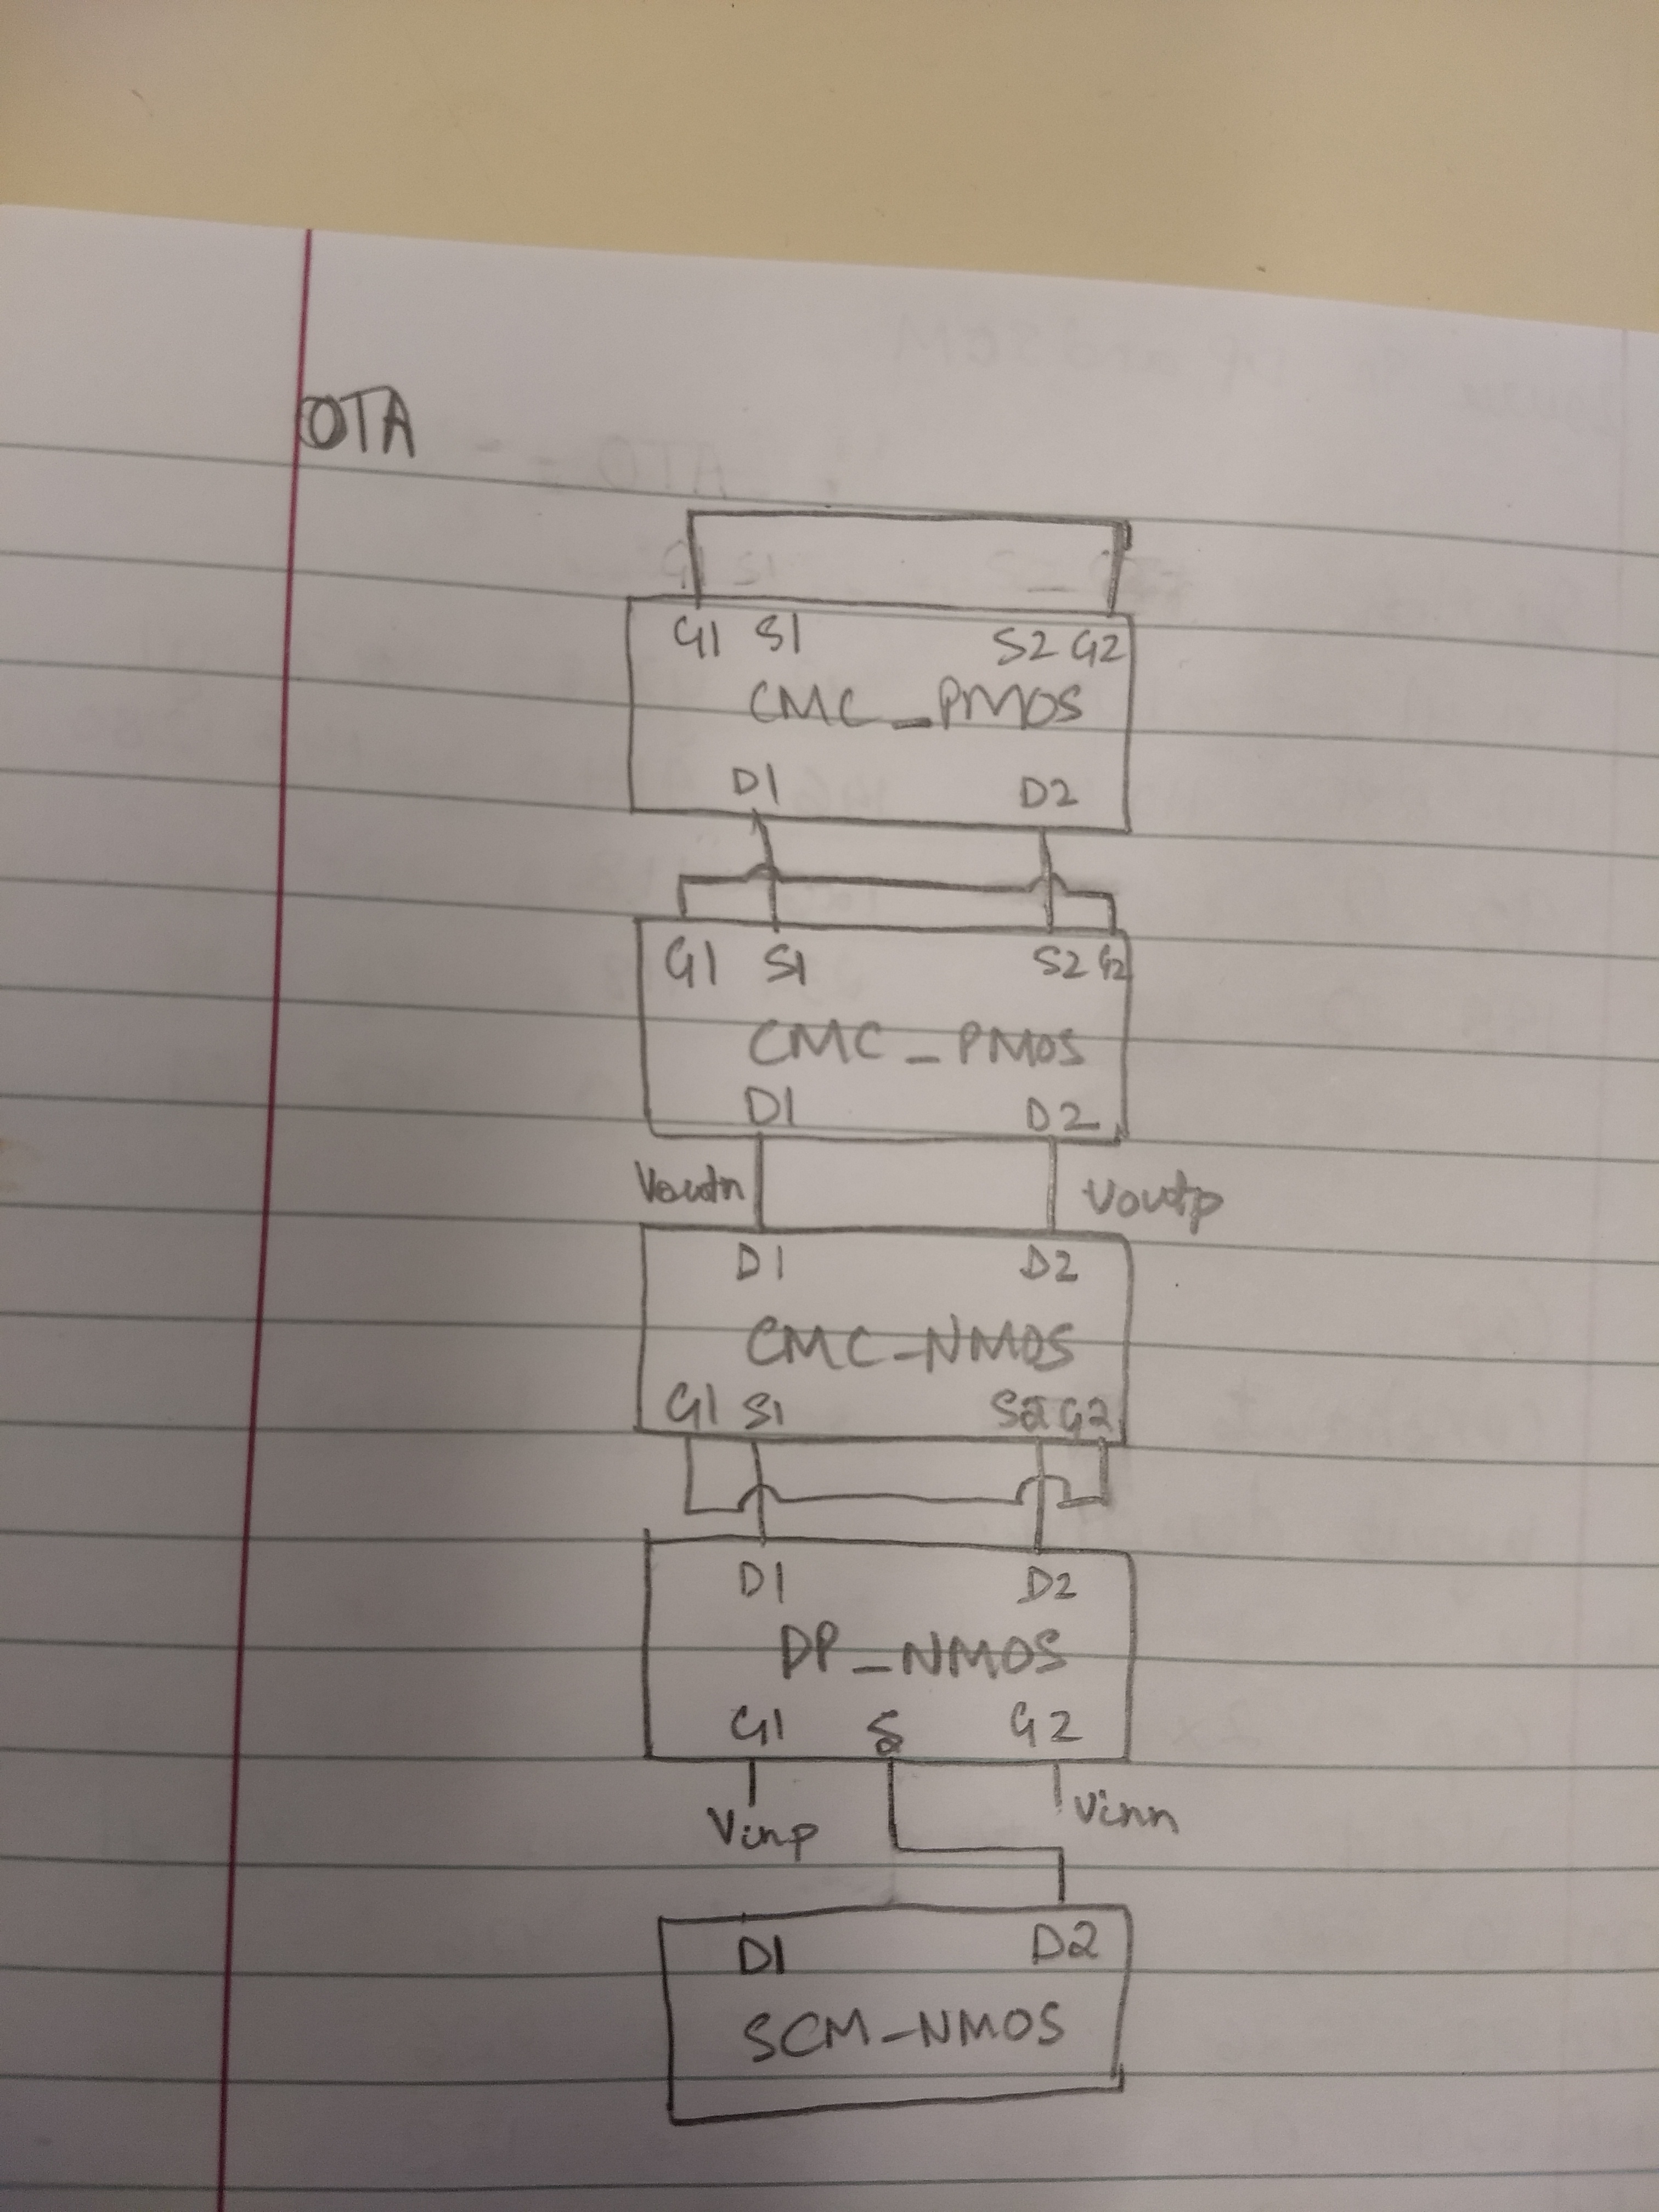 OTA
G1 S1 S2 G2
CMC_PMOS
D1 D2
G1 S1 S2 G2
CMC_PMOS
D1 D2
Voutn Voutp
D1 D2
CMC_NMOS
G1 S1 S2 G2
D1 D2
DP_NMOS
G1 S G2
Vinp Vinn
D1 D2
SCM_NMOS